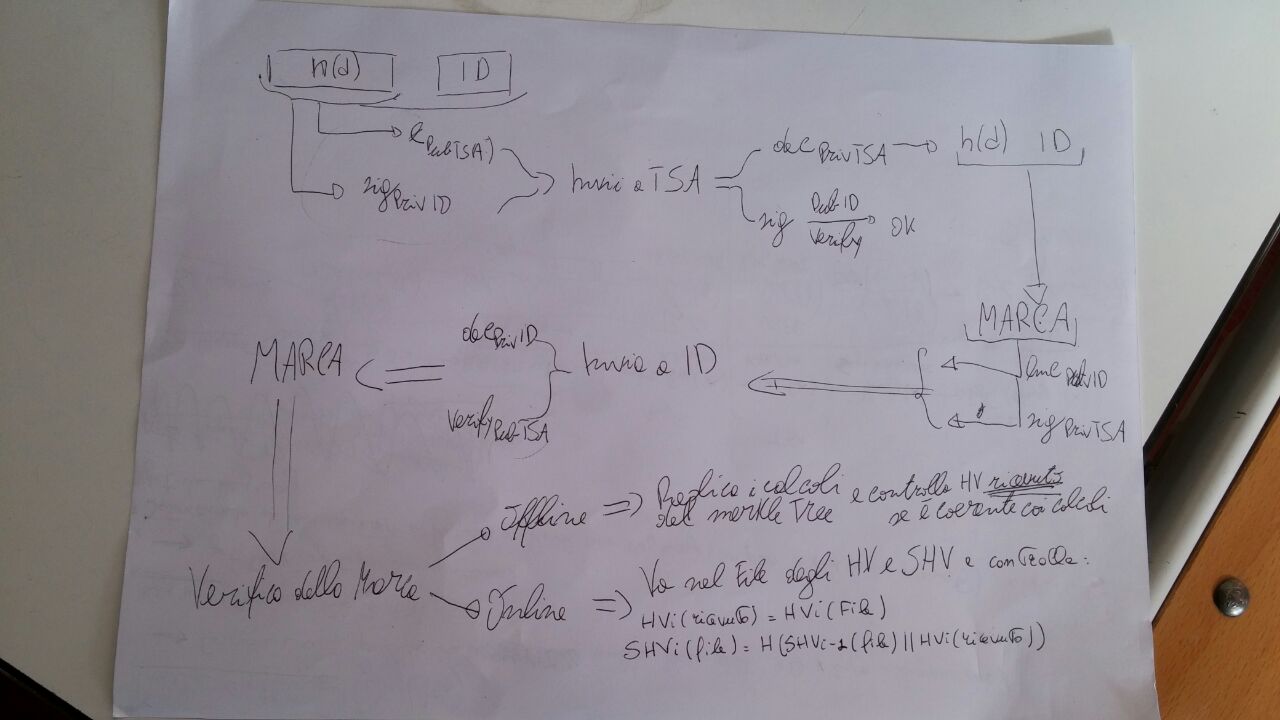 h(d) ID
e PubTSA)
sig PrivID
Invio a TSA
dec PrivTSA
h(d) ID
sig PubID Verify OK
MARCA
enc PubID
sig PrivTSA
Invio a ID
dec PrivID
Verify PubTSA
MARCA
Verifica della Marca
Offline
Replica i calcoli e controlla HV ricevuto
del merkle Tree se è coerente coi calcoli
Online
Va nel File degli HV e SHV e controlla:
HVi(ricevuto) = HVi(File)
SHVi(file) = H(SHVi-1(file) || HVi(ricevuto))